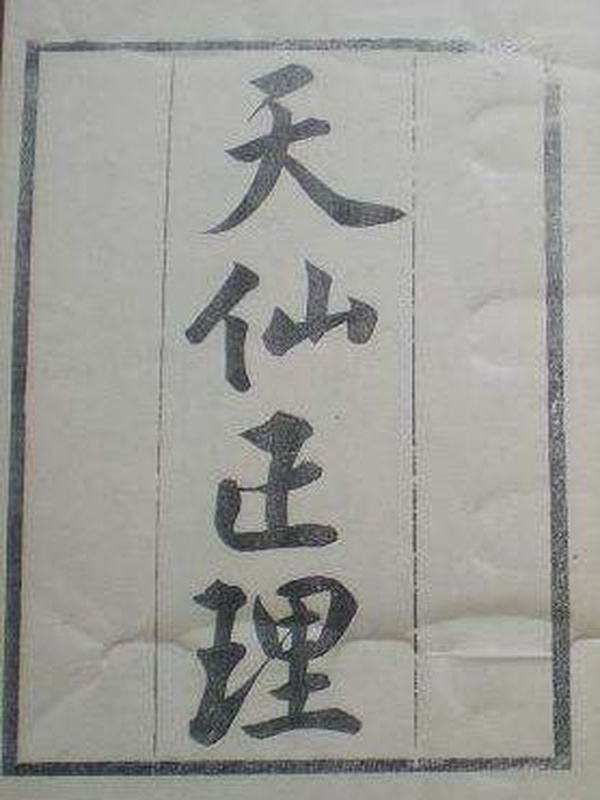 天仙正理